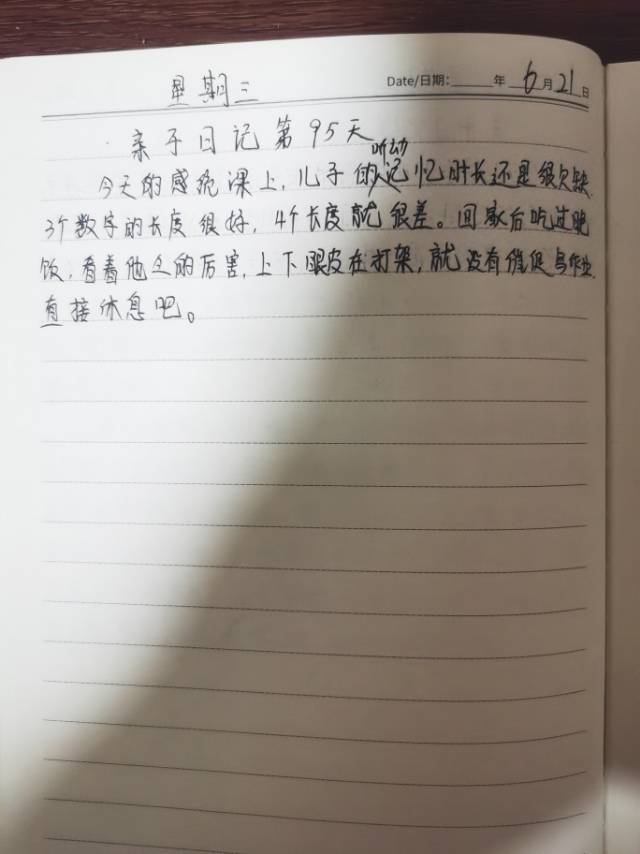 星期三 Date/日期:____年 6月21日
亲子日记第95天
今天的感统课上,儿子的听动记忆时长还是很欠缺
3个数字的长度很好,4个长度就很差。回家后吃过晚
饭,看着他乏的厉害,上下眼皮在打架,就没有催促写作业
直接休息吧。